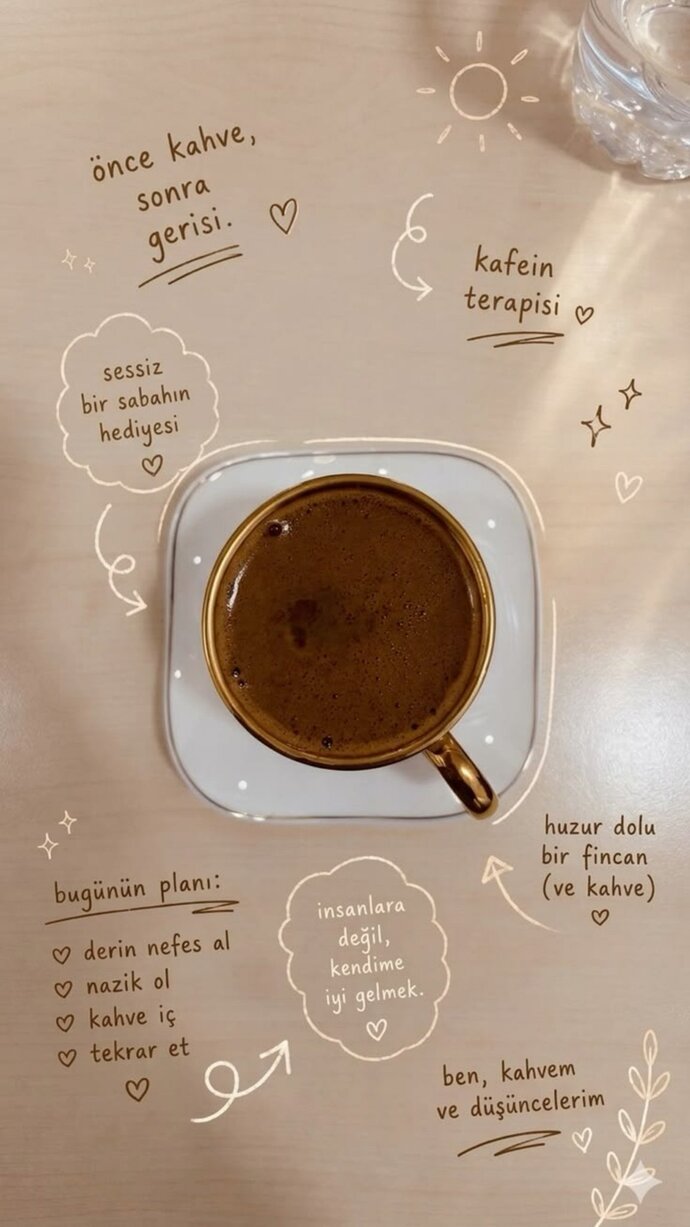 önce kahve,
sonra
gerisi.
kafein
terapisi
sessiz
bir sabahın
hediyesi
huzur dolu
bir fincan
(ve kahve)
bugünün planı:
derin nefes al
nazik ol
kahve iç
tekrar et
insanlara
değil,
kendime
iyi gelmek.
ben, kahvem
ve düşüncelerim